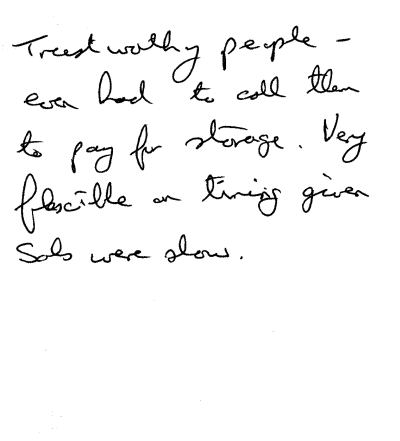 Trustworthy people -
even had to call them
to pay for storage. Very
flexible on timing given
Sols were slow.